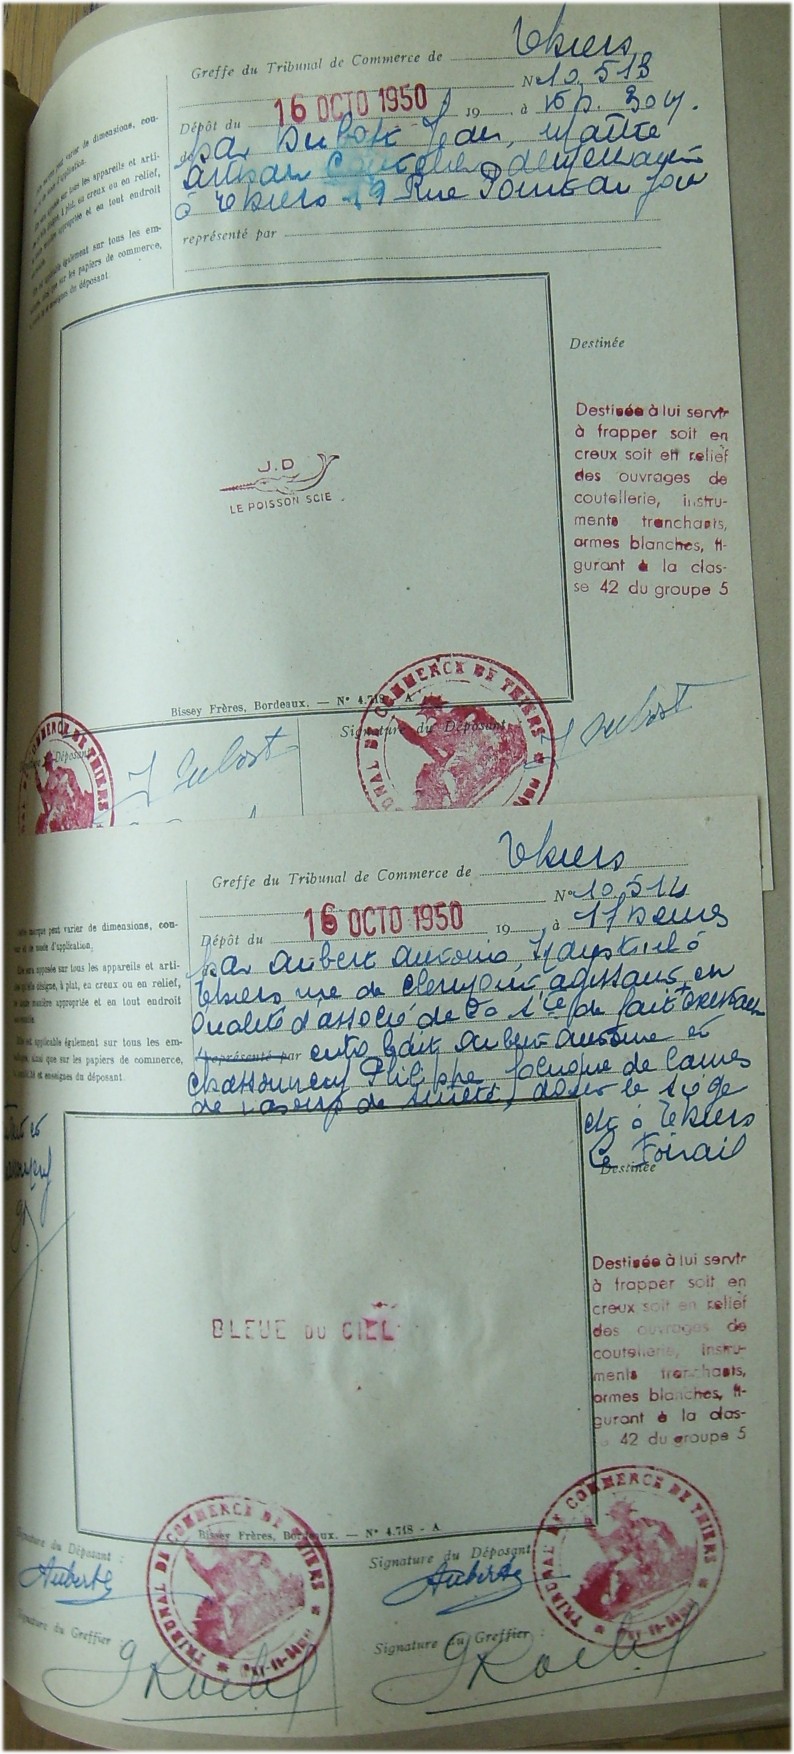 Greffe du Tribunal de Commerce de Thiers
N° 10.513
Dépôt du 16 OCTO 1950 19 à 15 h. 30 m.
par Dubost Jean, maître
artisan Coutelier demeurant
à Thiers 19 Rue Point du Jour
représenté par
varier de dimensions, cou-
d'application.
sur tous les appareils et arti-
désigne, à plat, en creux ou en relief,
appropriée et en tout endroit
également sur tous les em-
que sur les papiers de commerce,
du déposant.
Destinée
Destinée à lui servir
à frapper soit en
creux soit en relief
des ouvrages de
coutellerie, instru-
ments tranchants,
armes blanches, fi-
gurant à la clas-
se 42 du groupe 5
J.D
LE POISSON SCIE
Bissey Frères, Bordeaux. — N° 4.718 - A
Signature du Déposant
J Dubost
J Dubost
COMMERCE DE THIERS
TRIBUNAL DE COMMERCE DE THIERS
Greffe du Tribunal de Commerce de Thiers
N° 10.514
Dépôt du 16 OCTO 1950 19 à 17 heures
par Aubert Antonin, Industriel à
Thiers rue de Clermont agissant en
qualité d'associé de la Sté de fait existant
représenté par entre Aubert Antonin et
Philippe fabrique de lames
de rasoirs de sûreté, dont le siège
est à Thiers
Le Foirail
marque peut varier de dimensions, cou-
mode d'application.
Elle sera apposée sur tous les appareils et arti-
désigne, à plat, en creux ou en relief,
manière appropriée et en tout endroit
est applicable également sur tous les em-
ainsi que sur les papiers de commerce,
et enseignes du déposant.
Destinée
Destinée à lui servir
à frapper soit en
creux soit en relief
des ouvrages de
coutellerie, instru-
ments tranchants,
armes blanches, fi-
gurant à la clas-
42 du groupe 5
BLEUE DU CIEL
Bissey Frères, Bordeaux. — N° 4.718 - A
Signature du Déposant :
Aubert
Signature du Déposant
Aubert
TRIBUNAL DE COMMERCE DE THIERS
TRIBUNAL DE COMMERCE DE THIERS
Signature du Greffier :
Signature du Greffier :